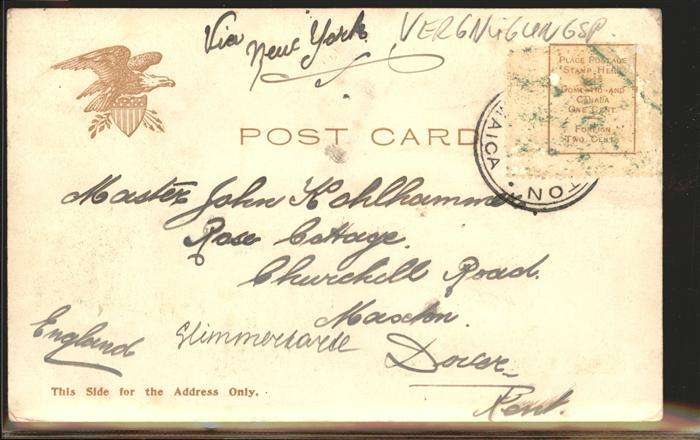 Via
New York
VERGNÜGUNGSP.
PLACE POSTAGE
STAMP HERE
DOMESTIC AND
CANADA
ONE CENT
FOREIGN
TWO CENTS
POST CARD
MAICA • TON
Master John Kohlhammer
Rose Cottage.
Churchill Road.
Maxton.
England
Glimmerkarte
Dover
Kent.
This Side for the Address Only.